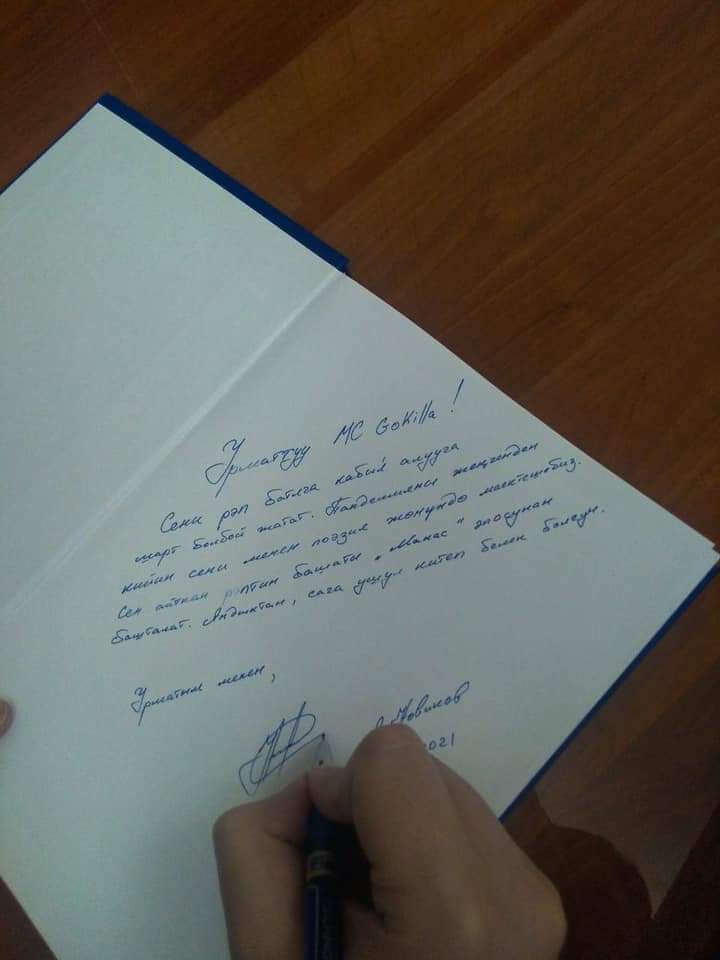 Урматтуу MC GoKilla!
Сени рэп батлга кабыл алууга
шарт болбой жатат. Пандемияны жеңгенден
кийин сени менен поэзия жөнүндө маектешебиз.
Сен айткан рэптин башаты "Манас" эпосунан
башталат. Андыктан, сага ушул китеп белек болсун.
Урматым менен,
2021